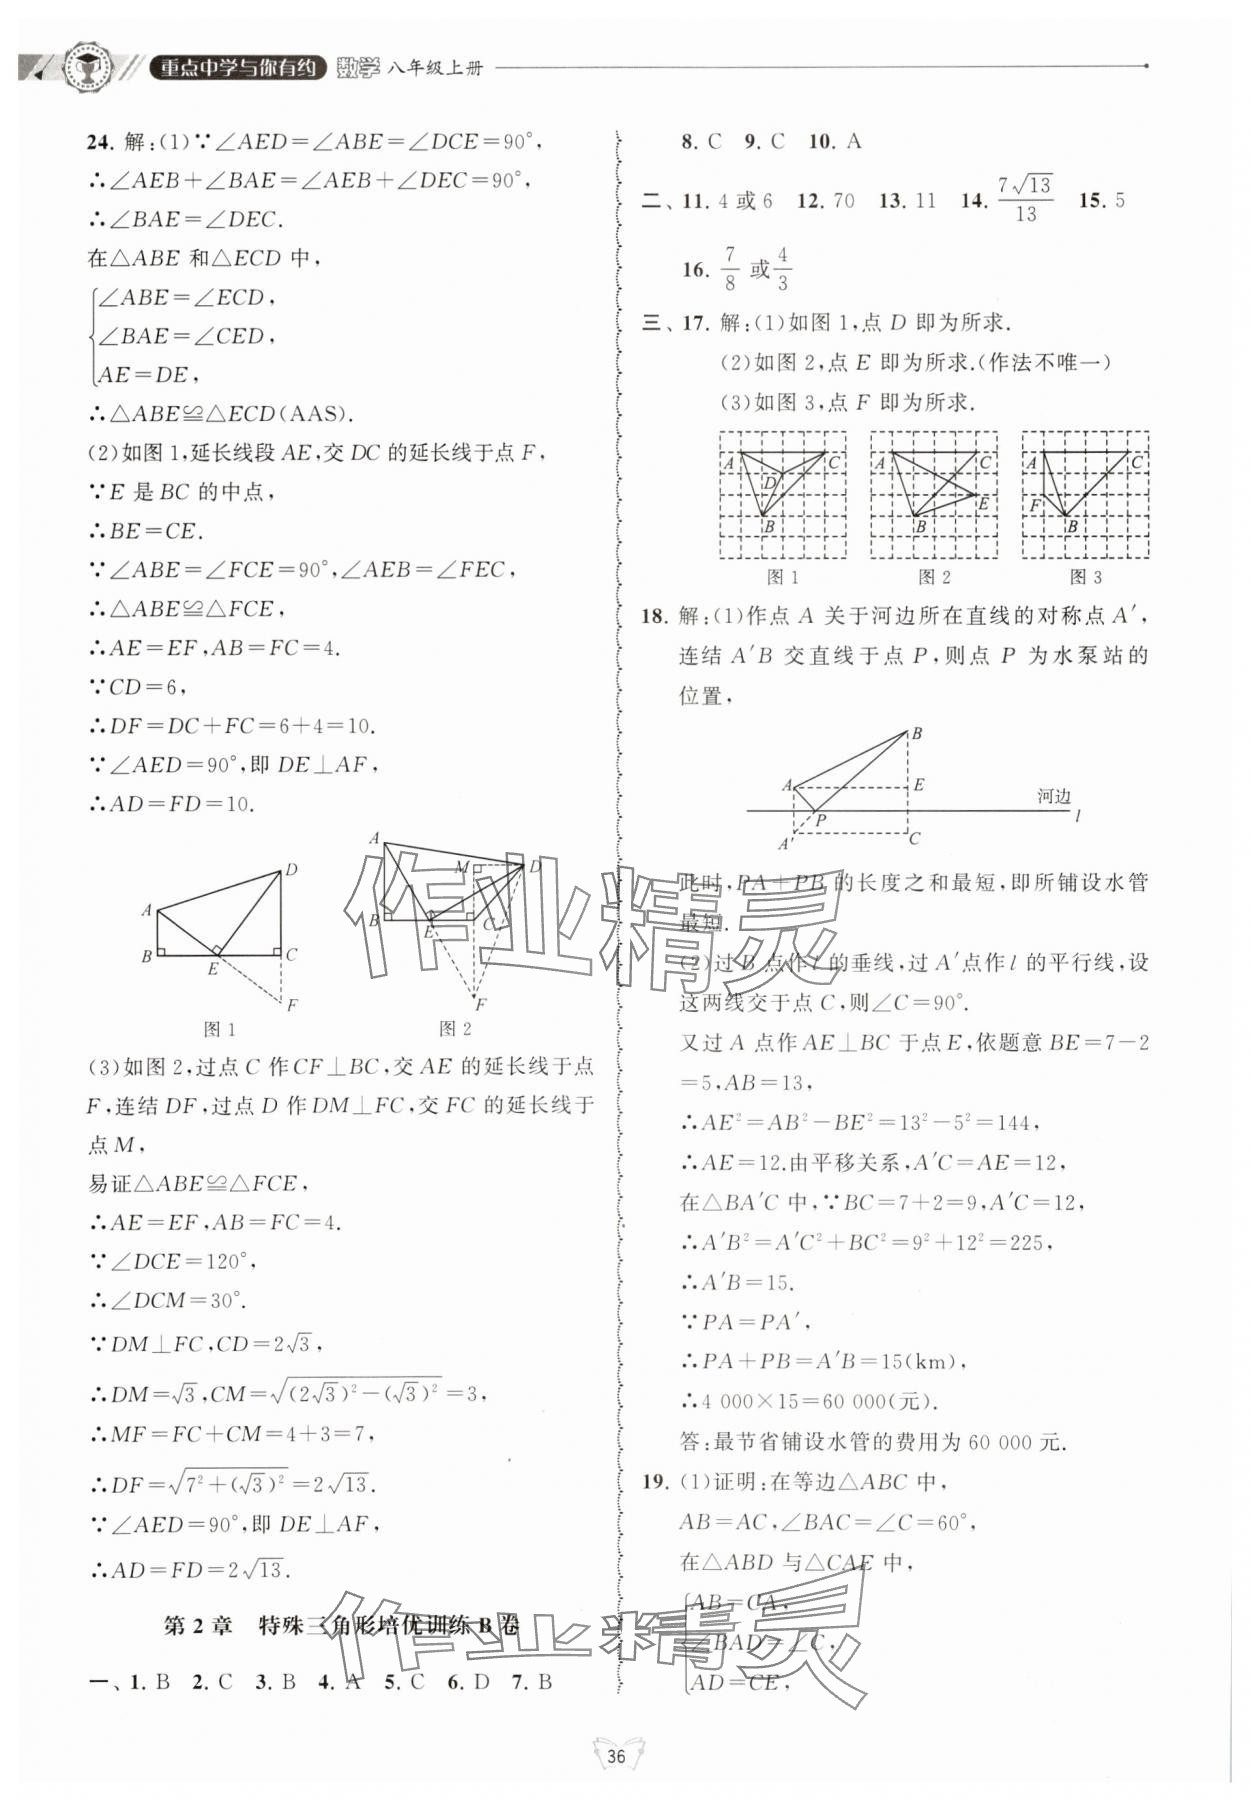 重点中学与你有约 数学 八年级上册
24. 解:(1)∵∠AED=∠ABE=∠DCE=90°,
∴∠AEB+∠BAE=∠AEB+∠DEC=90°,
∴∠BAE=∠DEC.
在△ABE 和△ECD 中,
∠ABE=∠ECD,
∠BAE=∠CED,
AE=DE,
∴△ABE≌△ECD(AAS).
(2)如图1,延长线段 AE,交 DC 的延长线于点 F,
∵E 是 BC 的中点,
∴BE=CE.
∵∠ABE=∠FCE=90°,∠AEB=∠FEC,
∴△ABE≌△FCE,
∴AE=EF,AB=FC=4.
∵CD=6,
∴DF=DC+FC=6+4=10.
∵∠AED=90°,即 DE⊥AF,
∴AD=FD=10.
A B C D E F
图 1
A B C D E F M
图 2
(3)如图 2,过点 C 作 CF⊥BC,交 AE 的延长线于点
F,连结 DF,过点 D 作 DM⊥FC,交 FC 的延长线于
点 M,
易证△ABE≌△FCE,
∴AE=EF,AB=FC=4.
∵∠DCE=120°,
∴∠DCM=30°.
∵DM⊥FC,CD=2√3,
∴DM=√3,CM=√((2√3)²-(√3)²)=3,
∴MF=FC+CM=4+3=7,
∴DF=√(7²+(√3)²)=2√13.
∵∠AED=90°,即 DE⊥AF,
∴AD=FD=2√13.
第 2 章 特殊三角形培优训练 B 卷
一、1. B 2. C 3. B 4. A 5. C 6. D 7. B
8. C 9. C 10. A
二、11. 4 或 6 12. 70 13. 11 14. 7√13/13 15. 5
16. 7/8 或 4/3
三、17. 解:(1)如图 1,点 D 即为所求.
(2)如图 2,点 E 即为所求.(作法不唯一)
(3)如图 3,点 F 即为所求.
A C D B
A C E B
A C F B
图 1 图 2 图 3
18. 解:(1)作点 A 关于河边所在直线的对称点 A′,
连结 A′B 交直线于点 P,则点 P 为水泵站的
位置,
B
A E 河边
P l
A′ C
此时,PA+PB 的长度之和最短,即所铺设水管
最短.
(2)过 B 点作 l 的垂线,过 A′点作 l 的平行线,设
这两线交于点 C,则∠C=90°.
又过 A 点作 AE⊥BC 于点 E,依题意 BE=7-2
=5,AB=13,
∴AE²=AB²-BE²=13²-5²=144,
∴AE=12.由平移关系,A′C=AE=12,
在△BA′C 中,∵BC=7+2=9,A′C=12,
∴A′B²=A′C²+BC²=9²+12²=225,
∴A′B=15.
∵PA=PA′,
∴PA+PB=A′B=15(km),
∴4 000×15=60 000(元).
答:最节省铺设水管的费用为 60 000 元.
19. (1)证明:在等边△ABC 中,
AB=AC,∠BAC=∠C=60°,
在△ABD 与△CAE 中,
AB=CA,
∠BAD=∠C,
AD=CE,
作业精灵
作业精灵
36